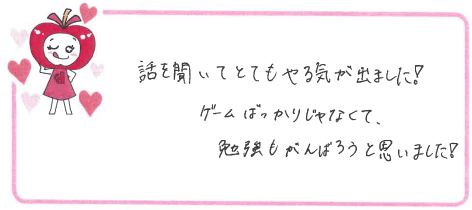 話を聞いてとてもやる気が出ました!
ゲームばっかりじゃなくて、
勉強もがんばろうと思いました!